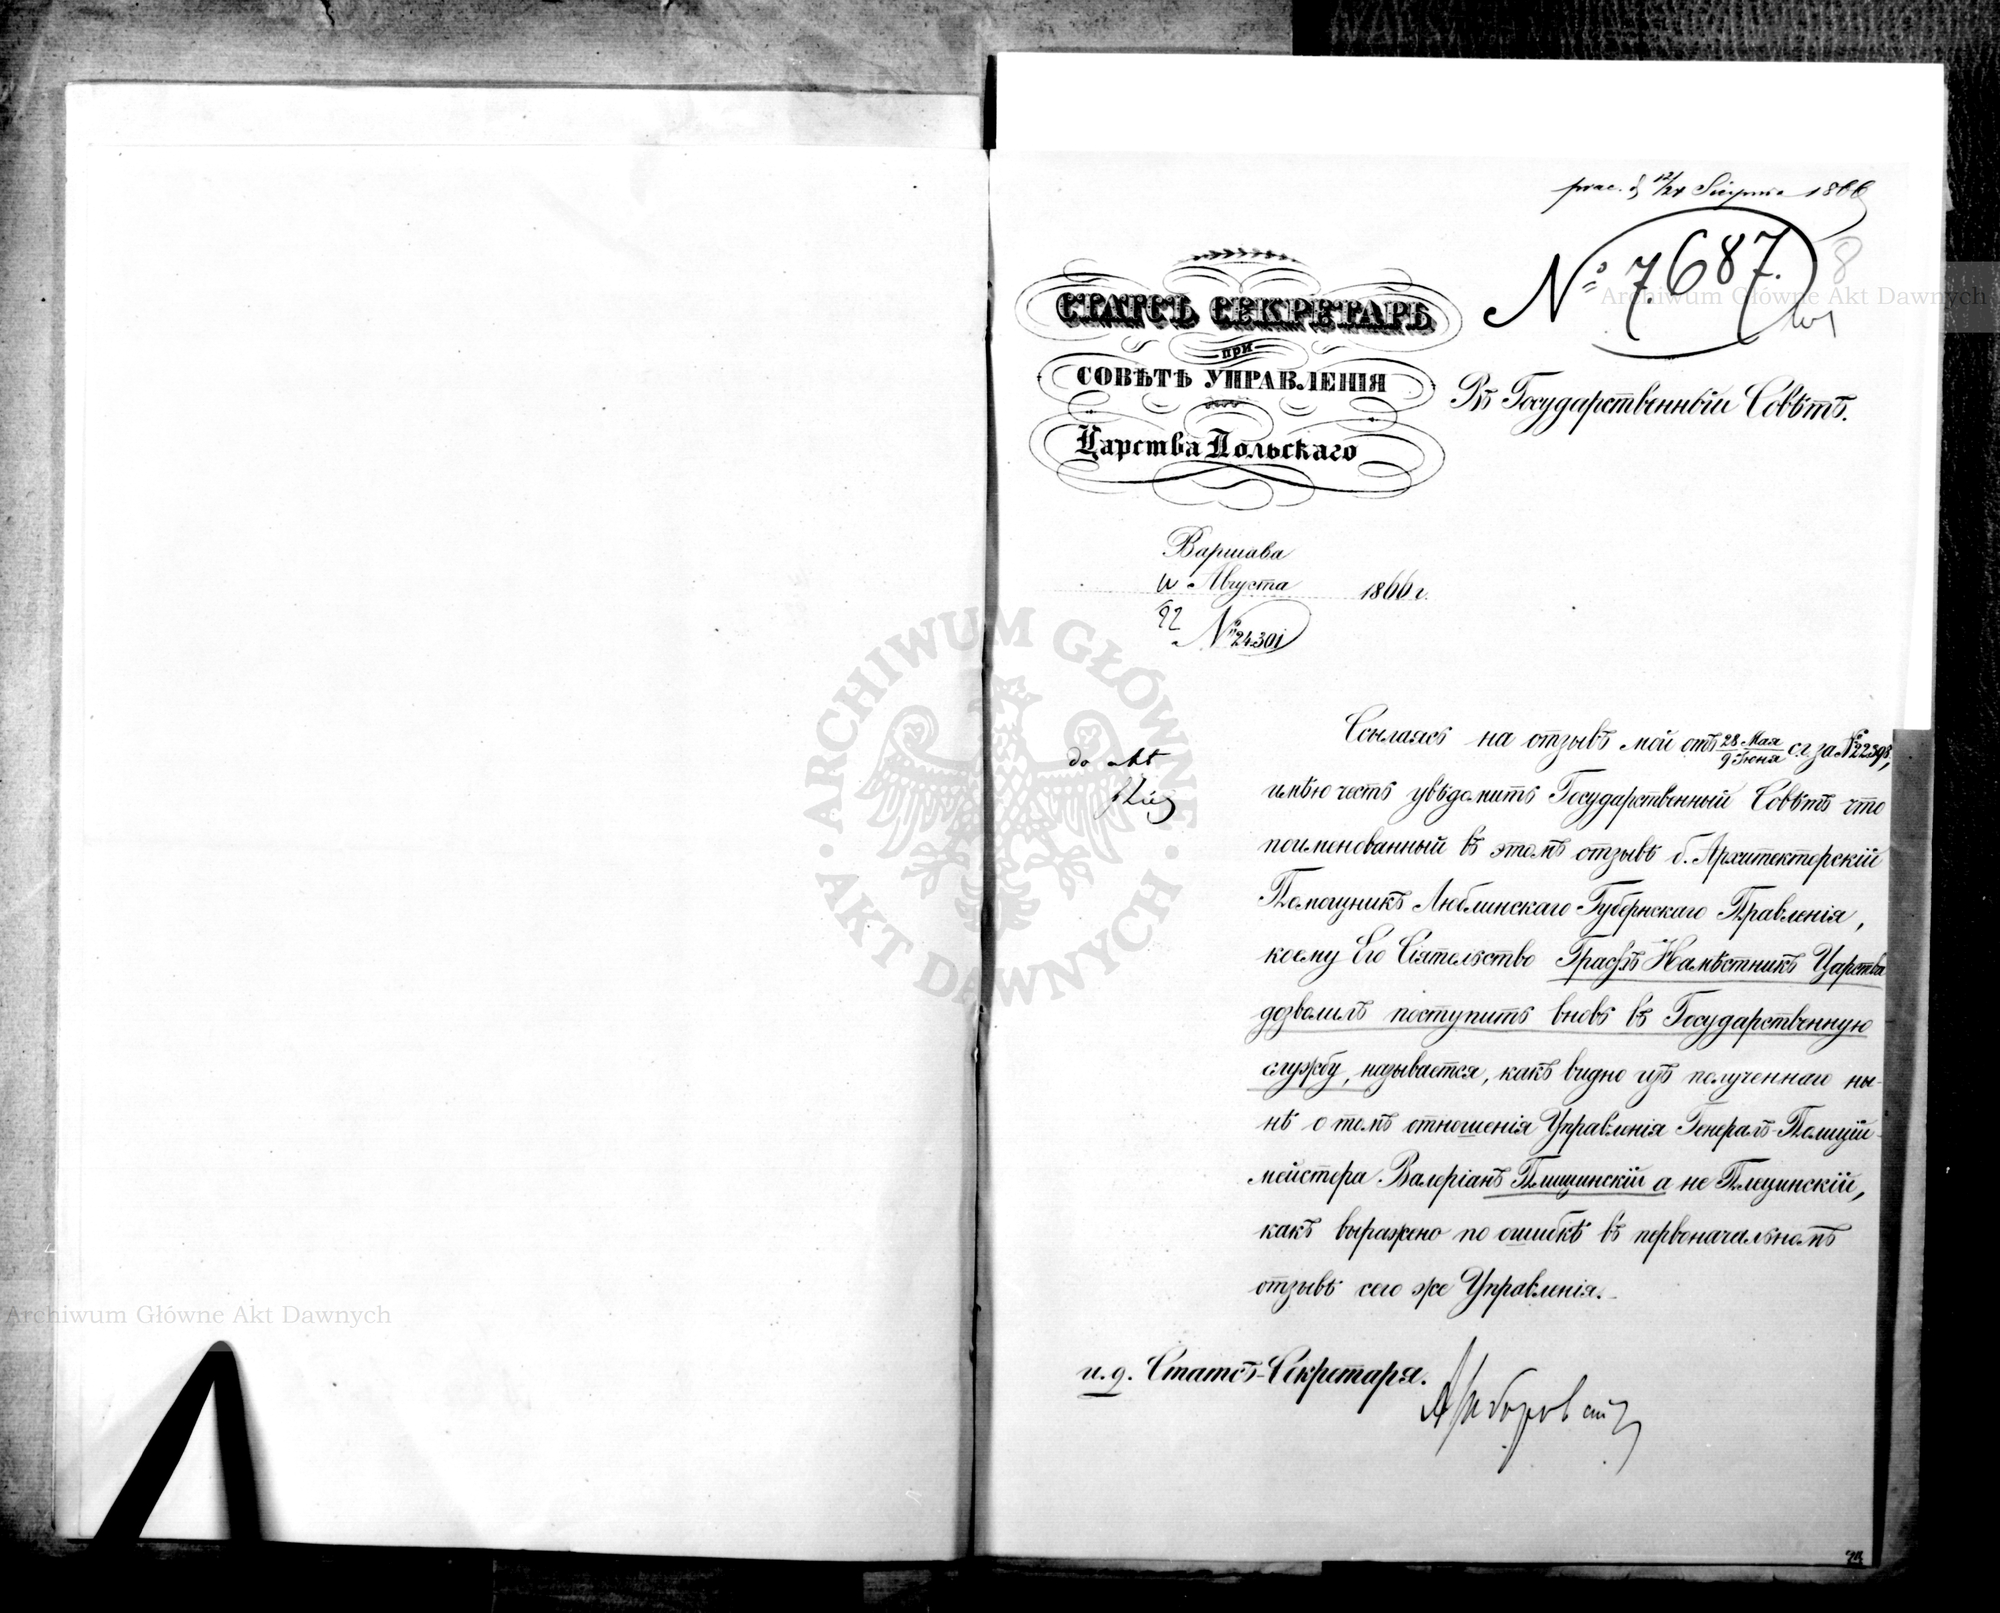 № 7687.
8
СТАТСЪ СЕКРЕТАРЬ
при
СОВѢТѢ УПРАВЛЕНІЯ
Царства Польскаго
Въ Государственный Совѣтъ.
Варшава
Августа 1866 г.
№ 24301
Ссылаясь на отзывъ мой отъ 28 Мая / 9 Іюня с. г. за №
имѣю честь увѣдомить Государственный Совѣтъ что
поименованный въ этомъ отзывѣ б. Архитекторскій
Помощникъ Люблинскаго Губернскаго Правленія,
коему Его Сіятельство Графъ Намѣстникъ Царства
дозволилъ поступить вновь въ Государственную
службу, называется, какъ видно изъ полученнаго ны-
нѣ о томъ отношенія Управленія Генералъ-Полицій-
мейстера Валеріанъ Плищинскій а не Плещинскій,
какъ выражено по ошибкѣ въ первоначальномъ
отзывѣ сего же Управленія.
и. д. Статсъ-Секретаря.
do akt
ARCHIWUM GŁÓWNE AKT DAWNYCH
Archiwum Główne Akt Dawnych
Archiwum Główne Akt Dawnych